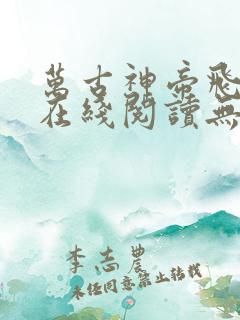 萬古神帝飛
在綫閱讀無
李志農
未經同意禁止轉載